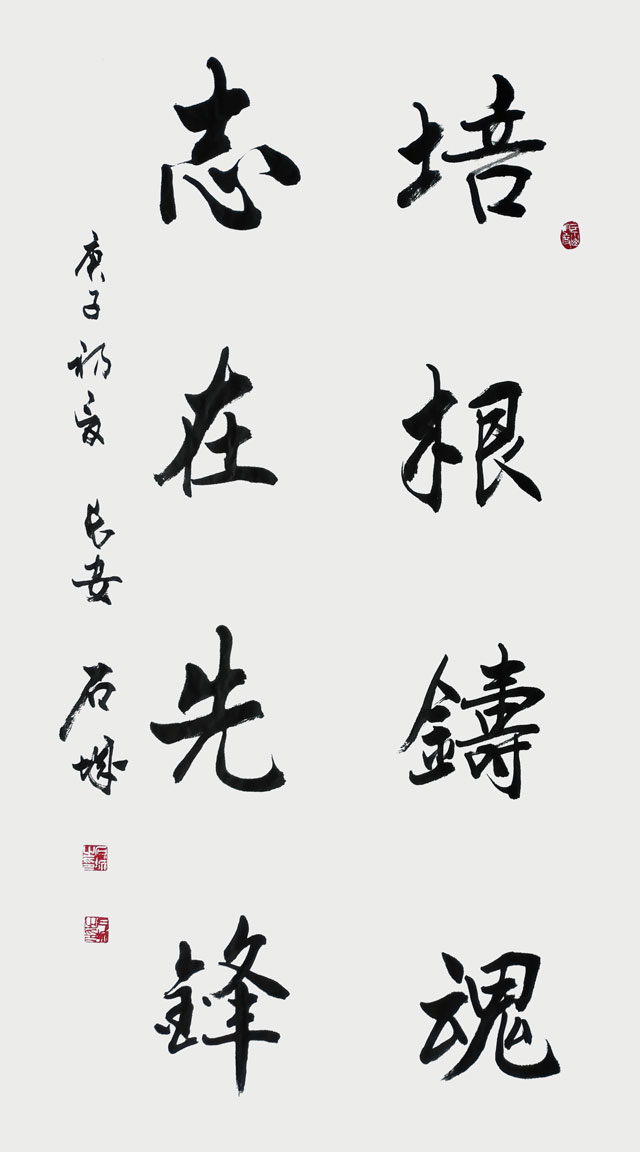 培根鑄魂
志在先鋒
庚子初夏 长安 石城